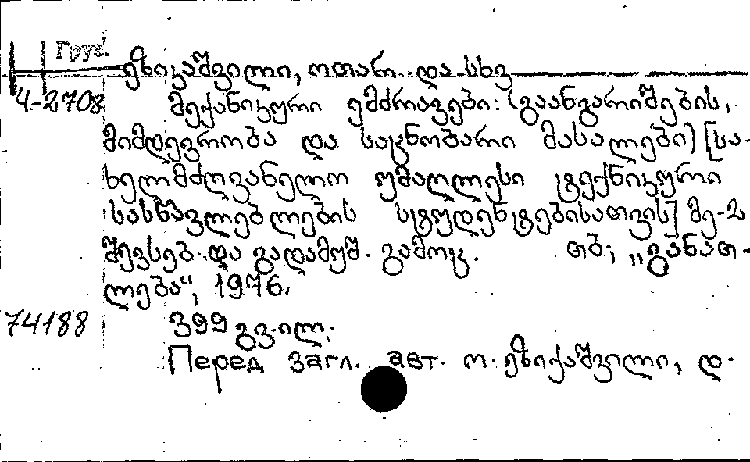 Груз.
ეზიკაშვილი, ოთარ და სხვ
4-2708 მექანიკური ემძრავები: (გაანგარიშების,
მიმდევრობა და საცნობარო მასალები) [სა-
ხელმძღვანელო უმაღლესი ტექნიკური
სასწავლებლების სტუდენტებისათვის] მე-2
შევსებ. და გადამუშ. გამოც. თბ., „განათ-
ლება“, 1976.
74188 399 გვ. ილ.
Перед загл. авт. ო. ეზიკაშვილი, დ.